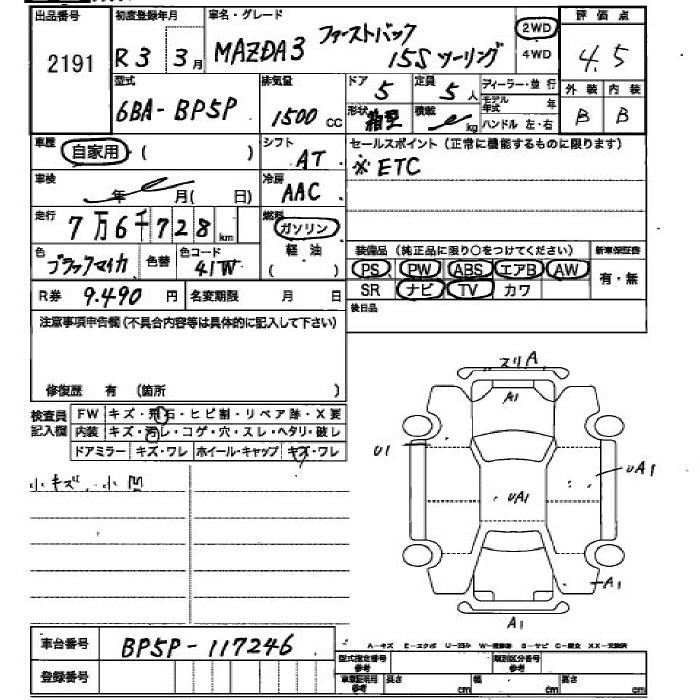 出品番号 初度登録年月 車名・グレード 評価点
2191 R3 3月 MAZDA3 ファーストバック 15S ツーリング 2WD 4WD 4.5
型式 排気量 ドア 定員 ディーラー・並行 外装 内装
6BA-BP5P 1500cc 5 5人 モデル年式 年 B B
形状 箱型 積載 kg ハンドル 左・右
車歴 自家用 ( ) シフト AT セールスポイント (正常に機能するものに限ります)
※ETC
車検 年 月( 日) 冷房 AAC
走行 7万6千728km 燃料 ガソリン
軽油
( )
色 ブラックマイカ 色替 色コード 41W
装備品 (純正品に限り○をつけてください) 新車保証書
PS PW ABS エアB AW 有・無
SR ナビ TV カワ
R券 9.490円 名変期限 月 日 後日品
注意事項申告欄(不具合内容等は具体的に記入して下さい)
修復歴 有 (箇所 )
検査員記入欄 FW キズ・飛石・ヒビ割・リペア跡・X要
内装 キズ・汚レ・コゲ・穴・スレ・ヘタリ・破レ
ドアミラー キズ・ワレ ホイール・キャップ キズ・ワレ
小キズ、小凹
スリA
A1
U1
UA1
UA1
A1
A1
車台番号 BP5P-117246
A-キズ E-エクボ U-凹み W-補修跡 S-サビ C-腐食 XX-交換済
登録番号
型式指定番号 参考 類別区分番号 参考
車庫証明用 参考 長さ cm 幅 cm 高さ cm